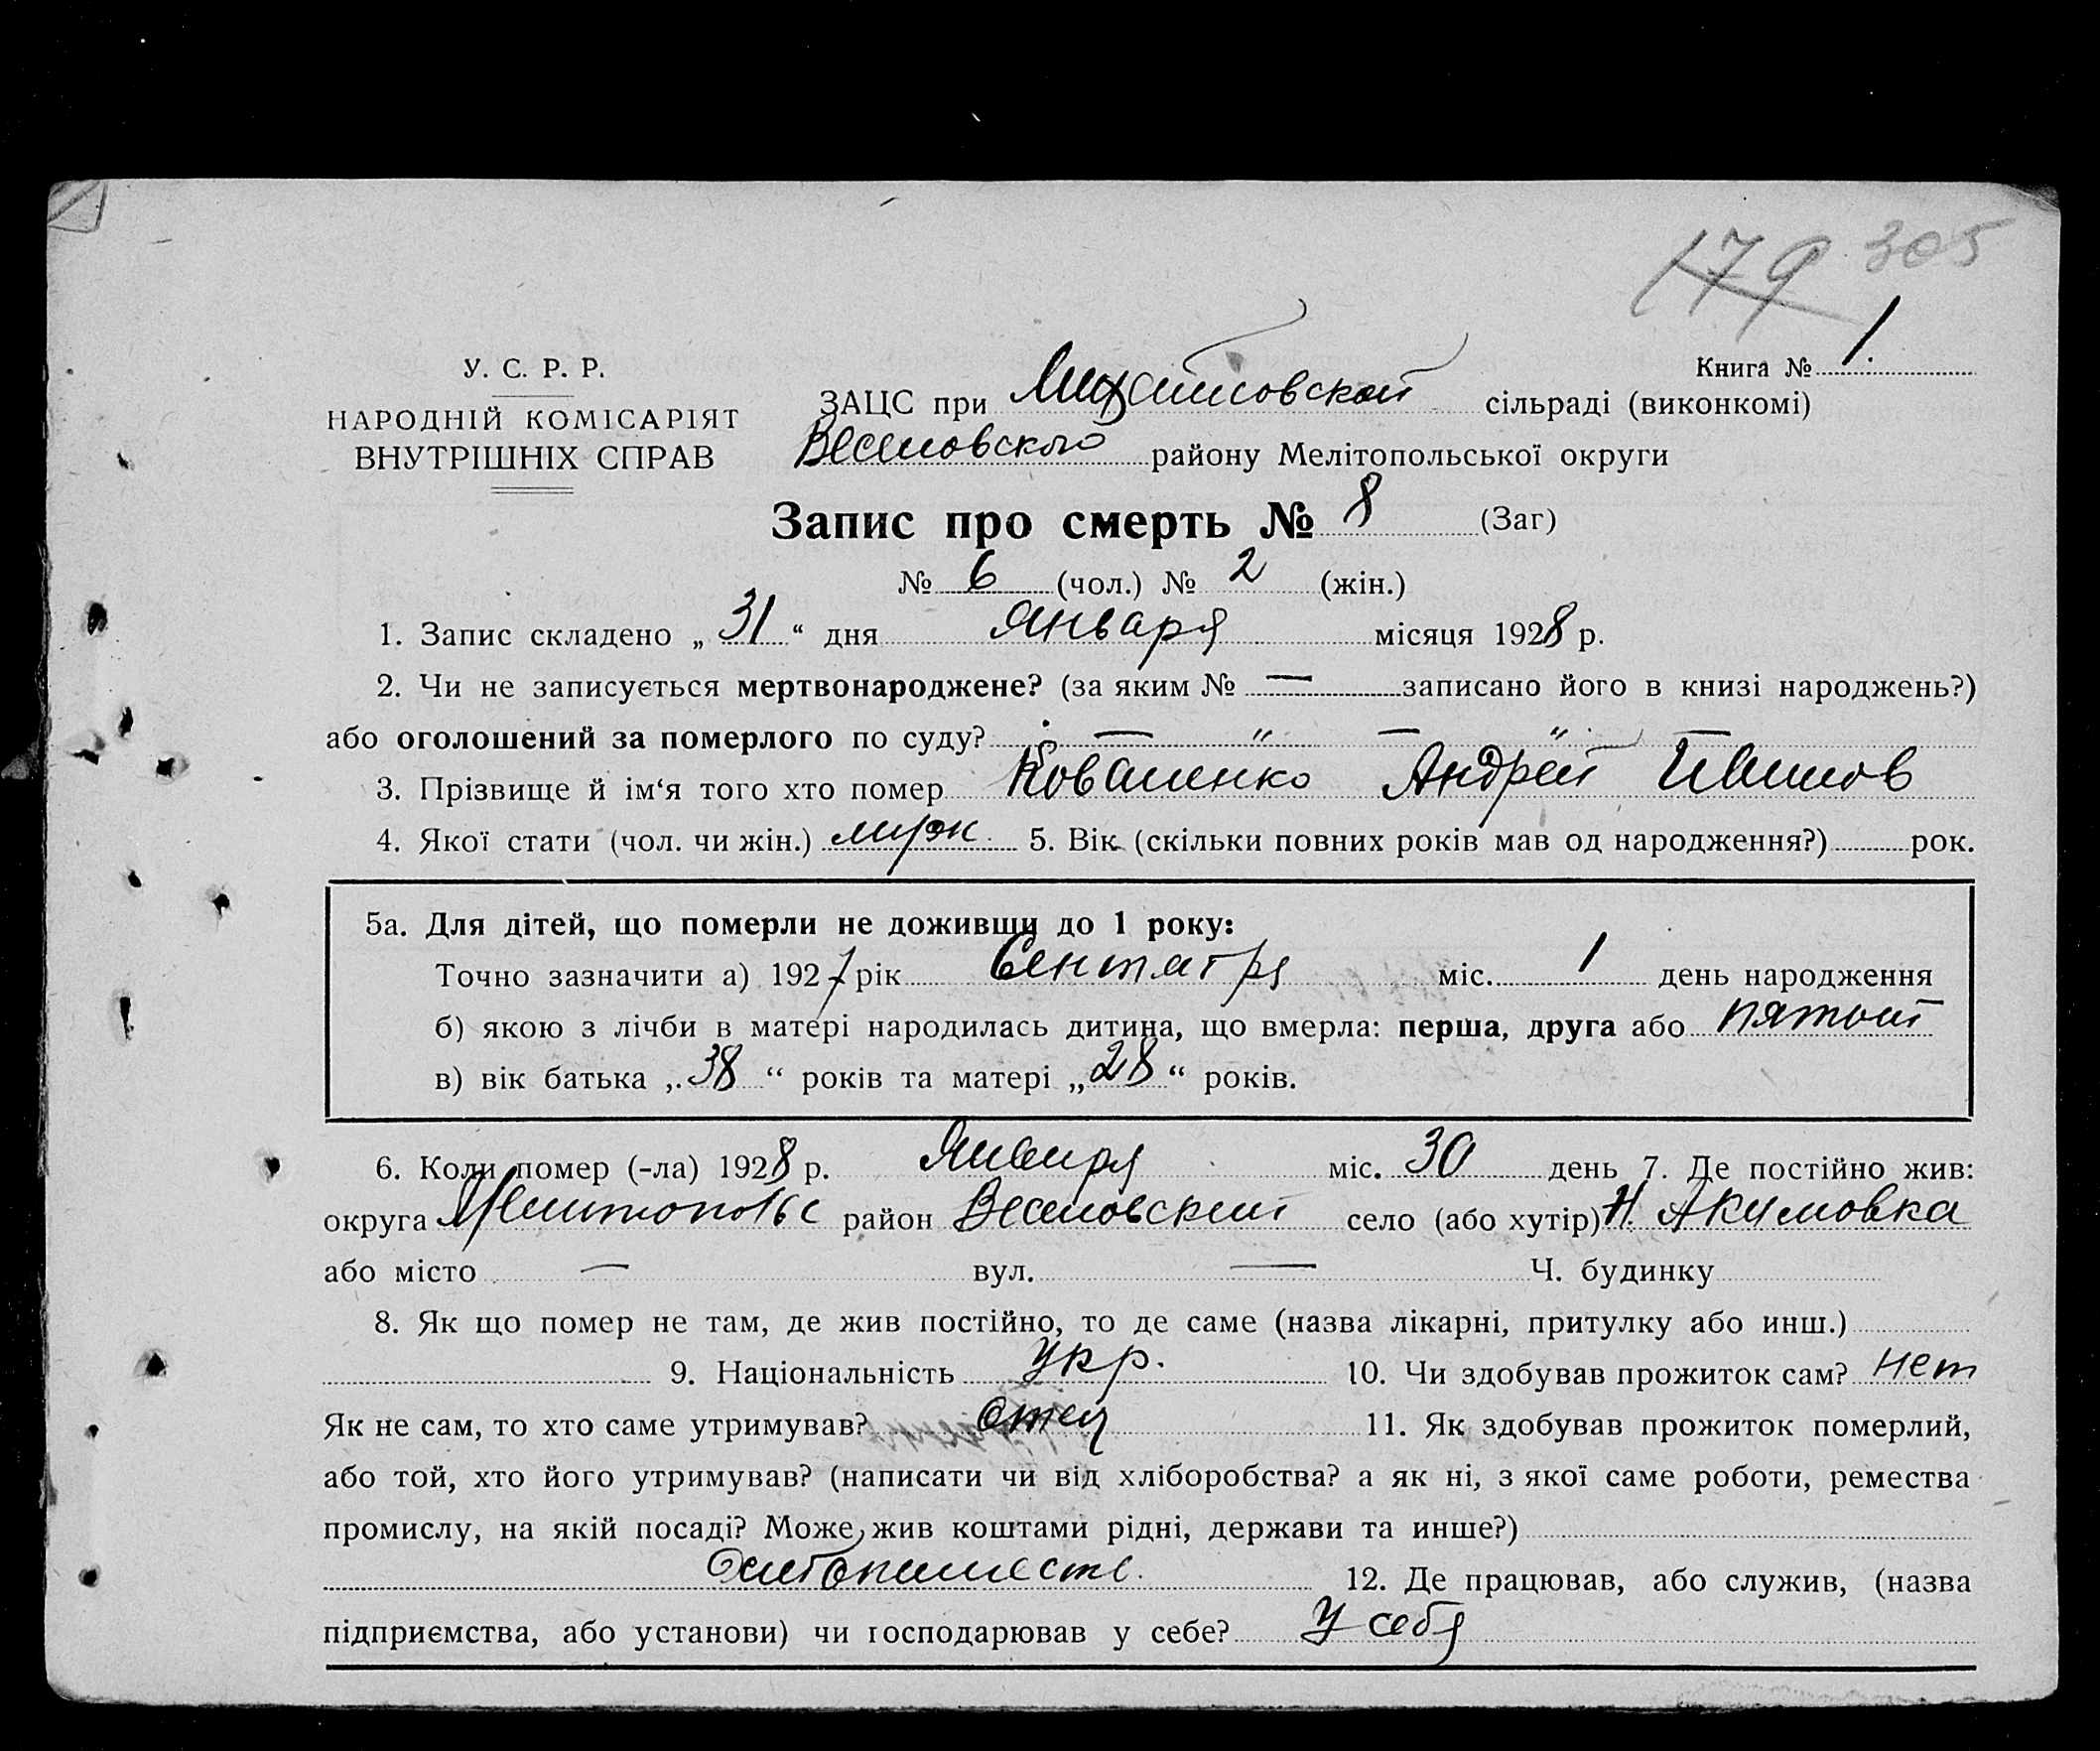 179 305
Книга № 1.
У. С. Р. Р.
НАРОДНІЙ КОМІСАРІЯТ
ВНУТРІШНІХ СПРАВ
ЗАЦС при Михайловской сільраді (виконкомі)
Веселовского району Мелітопольської округи
Запис про смерть № 8 (Заг)
№ 6 (чол.) № 2 (жін.)
1. Запис складено „ 31 “ дня Января місяця 1928 р.
2. Чи не записується мертвонароджене? (за яким № — записано його в книзі народжень?)
або оголошений за померлого по суду? — " — " —
3. Прізвище й ім‘я того хто помер Коваленко Андрей
4. Якої стати (чол. чи жін.) муж. 5. Вік (скільки повних років мав од народження?) рок.
5а. Для дітей, що померли не доживши до 1 року:
Точно зазначити а) 1927 рік Сентября міс. 1 день народження
б) якою з лічби в матері народилась дитина, що вмерла: перша, друга або пятый
в) вік батька „ 38 “ років та матері „ 28 “ років.
6. Коли помер (-ла) 1928 р. Января міс. 30 день 7. Де постійно жив:
округа Мелитопольс район Веселовский село (або хутір) Н. Акимовка
або місто — вул. — Ч. будинку
8. Як що помер не там, де жив постійно, то де саме (назва лікарні, притулку або инш.)
9. Національність укр. 10. Чи здобував прожиток сам? нет
Як не сам, то хто саме утримував? Отец 11. Як здобував прожиток померлий,
або той, хто його утримував? (написати чи від хліборобства? а як ні, з якої саме роботи, ремества
промислу, на якій посаді? Може, жив коштами рідні, держави та инше?)
12. Де працював, або служив, (назва
підприємства, або установи) чи господарював у себе? У себя